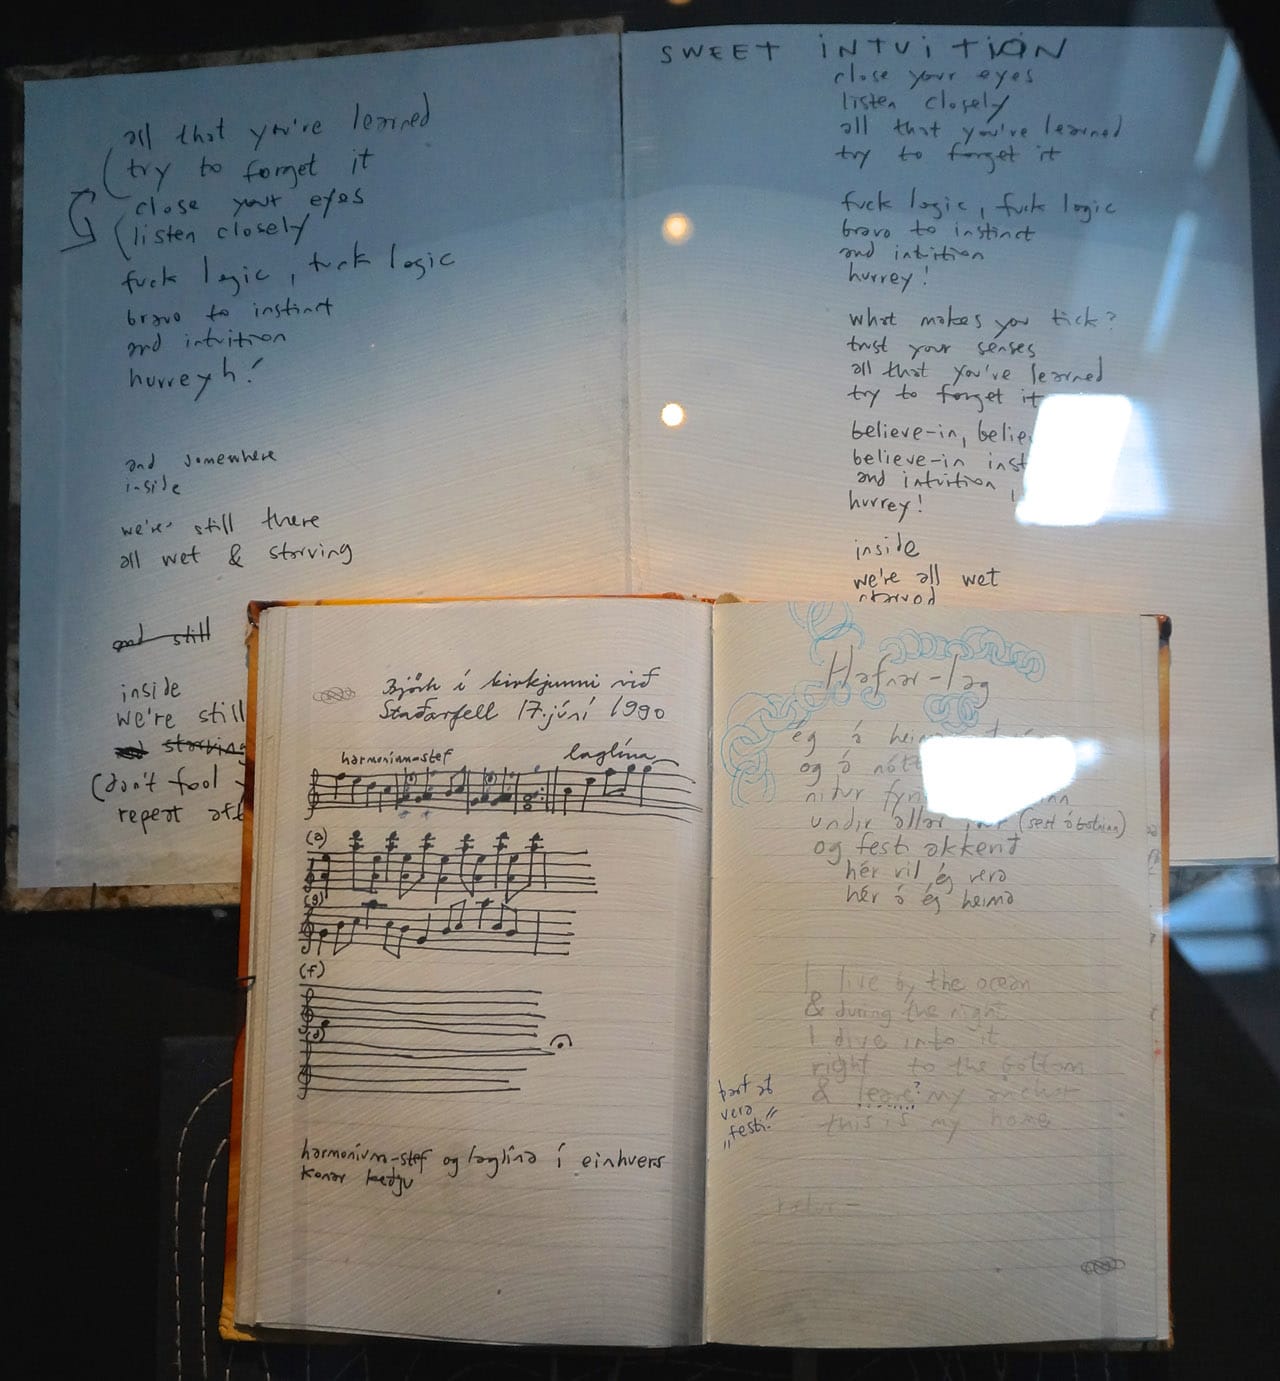 all that you're learned
try to forget it
close your eyes
listen closely
fuck logic, fuck logic
bravo to instinct
and intuition
hurreyh!
and somewhere
inside
we're still there
all wet & starving
and still
inside
we're still
starving
(don't fool
repeat
SWEET INTUITION
close your eyes
listen closely
all that you've learned
try to forget it
fuck logic, fuck logic
bravo to instinct
and intuition
hurrey!
what makes you tick?
trust your senses
all that you've learned
try to forget it
believe-in,
believe-in
and intuition
hurrey!
inside
we're all wet
starved
Björk í kirkjunni við
Staðarfell 17. júní 1990
harmóníum-stef laglína
(a)
(g)
(f)
(d)
harmoníum-stef og laglína í einhvers
konar keðju
Hafnar-lag
ég á
og á
niður
undir allar (sest á botninn)
og festi akkerið
hér vil ég vera
hér á ég heima
I live by the ocean
& during the night
I dive into it
right to the bottom
& leave? my anchor
this is my home
þarf að
vera
„festi"